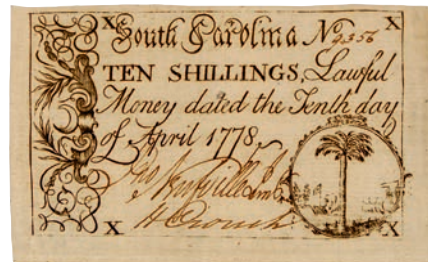 X South Carolina No 9356 X
TEN SHILLINGS, Lawful
Money dated the Tenth day
of April 1778,
X H Crouch X